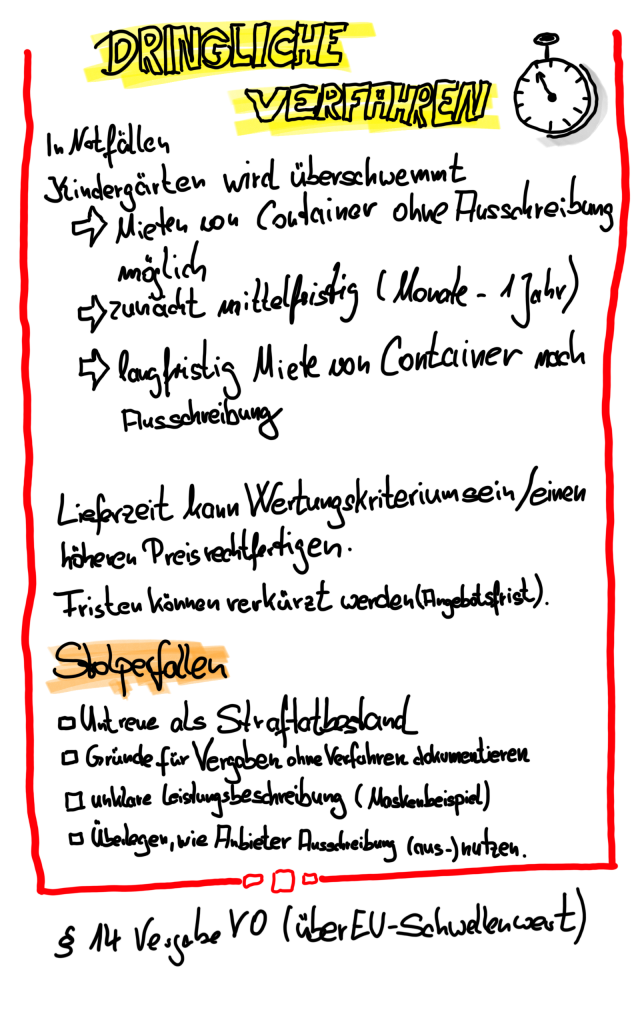 DRINGLICHE
VERFAHREN
In Notfällen
Kindergärten wird überschwemmt
Mieten von Container ohne Ausschreibung
möglich
zunächt mittelfristig (Monate - 1 Jahr)
langfristig Miete von Container nach
Ausschreibung
Lieferzeit kann Wertungskriterium sein/einen
höheren Preis rechtfertigen.
Fristen können verkürzt werden (Angebotsfrist).
Stolperfallen
Untreue als Straftatbestand
Gründe für Vergaben ohne Verfahren dokumentieren
unklare Leistungsbeschreibung (Maskenbeispiel)
Überlegen, wie Anbieter Ausschreibung (aus-)nutzen.
§ 14 Vergabe VO (über EU-Schwellenwert)